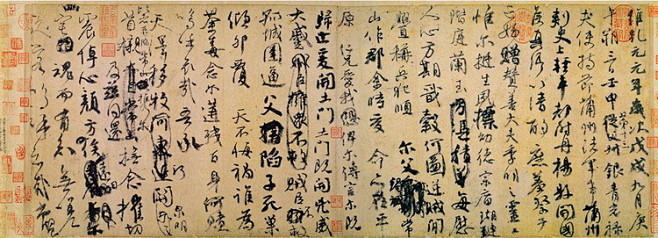 維乾元元年歲次戊戌九月庚
午朔三日壬申第十三從父銀青光祿
夫使持節蒲州諸軍事蒲州
刺史上輕車都尉丹楊縣開國
侯真卿以清酌庶羞祭于
亡姪贈贊善大夫季明之靈曰
惟爾挺生夙標幼德宗廟瑚璉
階庭蘭玉每慰
人心方期戩穀何圖逆賊閒
釁稱兵犯順爾父竭誠常
山作郡余時受命亦在平
原仁兄愛我俾爾傳言爾既
歸止爰開土門土門既開凶威
大蹙賊臣不救
孤城圍逼父陷子死巢
傾卵覆天不悔禍誰為
荼毒念爾遘殘百身何贖
嗚呼哀哉吾承
天澤移牧河關泉明
比者再陷常山攜爾
首櫬及茲同還撫念摧切
震悼心顏方俟
魂而有知無嗟
久客嗚呼哀哉尚饗